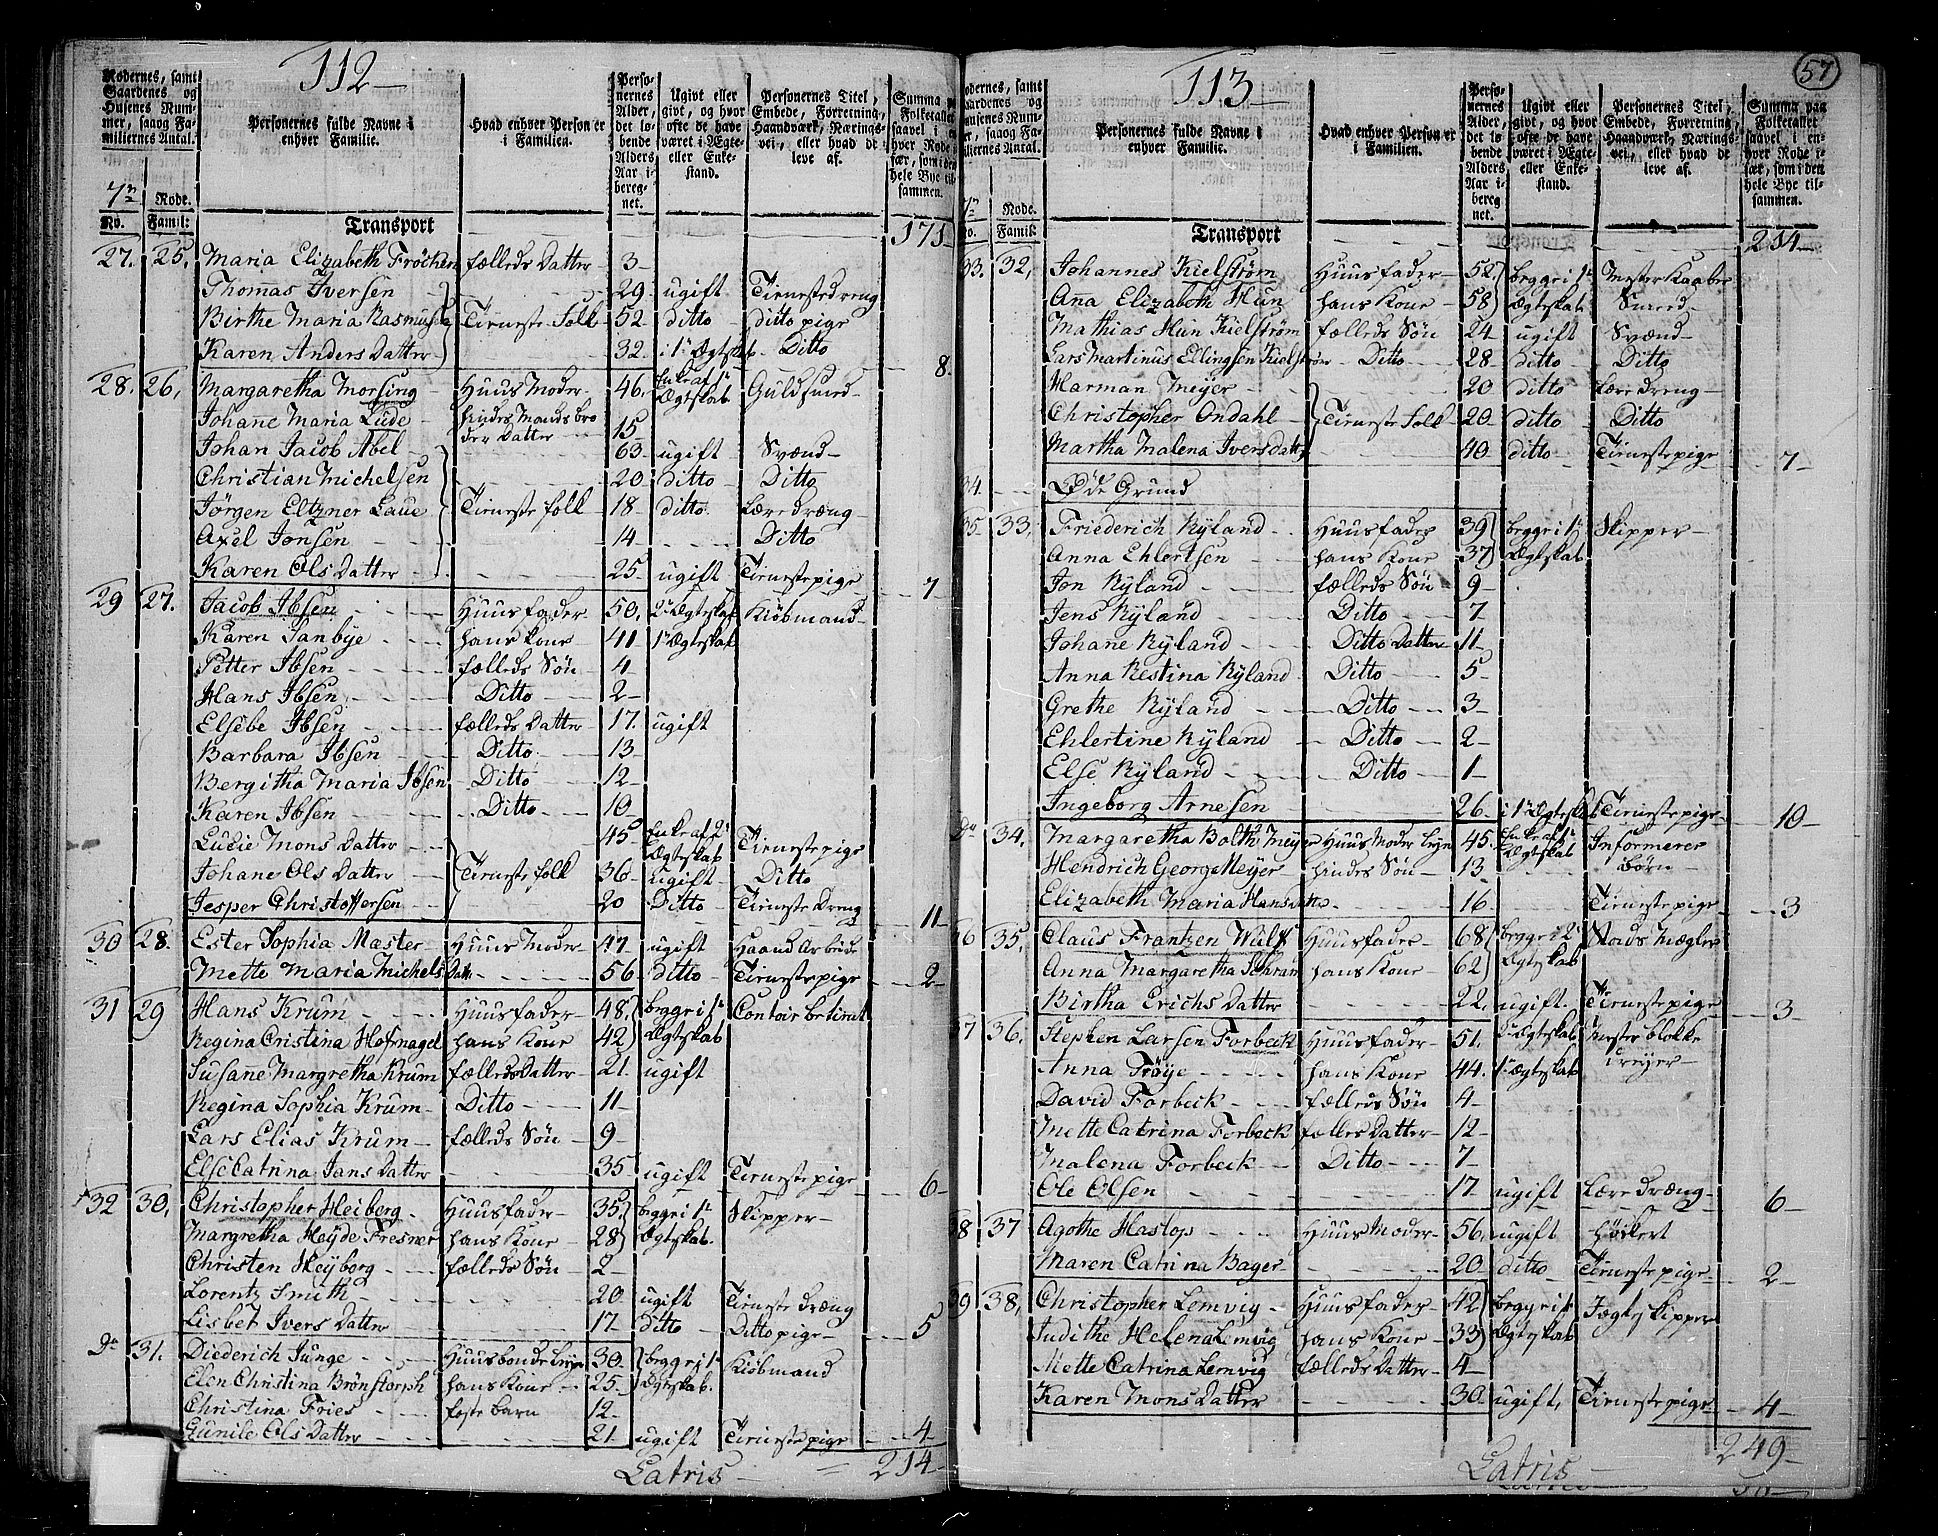 112
Rodernes, samt Gaardenes og Husenes Nummer, saaog Familiernes Antal.
Personernes fulde Navne i enhver Familie.
Hvad enhver Person er i Familien.
Personernes Alder, det løbende Alders Aar iberegnet.
Ugivt eller givt, og hvor ofte de have været i Ægte- eller Enkestand.
Personernes Titel, Embede, Forretning, Haandværk, Næringsvei, eller hvad de leve af.
7n Rode.
No. Famil:
Transport 171
27. 25. Maria Elizabeth Fröchen fælleds Datter 3
Thomas Iversen 29 ugift Tienestedreng
Birthe Maria Rasmusen Tieneste Folk 52 ditto ditto pige
Karen Anders Datter 32 i 1te Ægteskab Ditto 8
28. 26. Margaretha Morsing Huus Moder 46 Enke af 1te Ægteskab Guldsmed
Johanne Maria Lude hindes Mands broder Datter 15
Johan Jacob Abel 63 ugift Svænd
Christian Michelsen 20 ditto Ditto
Jörgen Eltzner Laue Tieneste folk 18 ditto Læredræng
Axel Jonsen 14 Ditto
Karen Ols Datter 25 ugift Tienestepige 7
29 27. Jacob Ibsen Huusfader 50 2t Ægteskab Kiöbmand
Karen Sanbye hans kone 41 1t Ægteskab
Petter Ibsen fælleds Sön 4
Hans Ibsen Ditto 2
Elsebe Ibsen fælleds Datter 17 ugift
Barbara Ibsen Ditto 13
Bergitha Maria Ibsen Ditto 12
Karen Ibsen Ditto 10
Lucie Mons Datter 45 Enke af 2t Ægteskab Tienestepige
Johane Ols Datter Tieneste folk 36 ugift Ditto
Jesper Christoffersen 20 Ditto Tieneste Dreng 11
30 28. Ester Sophia Mæster Huus Moder 47 ugift Haand Arbeide
Mette Maria Michels Datter 56 ditto Tienestepige 2
31 29 Hans Krum Huusfader 48 begge i 1t Contoir betient
Regina Cristina Hofnagel hans Kone 42 Ægteskab
Susane Margretha Krum fælleds Datter 21 ugift
Regina Sophia Krum Ditto 11
Lars Elias Krum fælleds Sön 9
Else Catrina Jans Datter 35 ugift Tienestepige 6
32 30. Christopher Heiberg Huusfader 35 begge i 1t Skipper
Margretha Heyde Fresner hans Kone 28 Ægteskab
Christen Heyborg fælleds Sön 2
Lorentz Smith 20 ugift Tieneste dræng
Lisbet Ivers Datter 17 ditto Ditto pige 5
Do 31. Diederich Junge Huusbonde 30 begge i 1t Kiöbmand
Elen Christina Brönstorph hans Kone 25 Ægteskab
Christina Fries foste barn 12
Gunile Ols Datter 21 ugift Tienestepige 4
Latris 214
57
113
Rodernes, samt Gaardenes og Husenes Nummer, saaog Familiernes Antal.
Personernes fulde Navne i enhver Familie.
Hvad enhver Person er i Familien.
Personernes Alder, det løbende Alders Aar iberegnet.
Ugivt eller givt, og hvor ofte de have været i Ægte- eller Enkestand.
Personernes Titel, Embede, Forretning, Haandværk, Næringsvei, eller hvad de leve af.
Summa paa Folketallet saavel i enhver Rode især, som i den hele Bye tilsammen.
Rode.
No. Famil:
Transport 214
33. 32. Johannes Kielström Huusfader 52 begge i 1t Mester Kaaber
Anna Elizabeth Hun hans Kone 58 Ægteskab Smed
Mathias Hun Kielström fælleds Sön 24 ugift Svænd
Lars Martinus Ellingsen Kielström Ditto 28 ditto Ditto
Harman Meyer 20 ditto Læredreng
Christopher Ondahl Tieneste Folk 20 ditto Ditto
Martha Malena Ivers Datter 40 ditto Tienestepige 7
34 Öde Grund
35 33. Friederich Ryland Huusfader 39 begge i 1t Skipper
Anna Ehlertsen hans Kone 37 Ægteskab
Jon Ryland fælleds Sön 9
Jens Ryland Ditto 7
Johane Ryland Ditto Datter 11
Anna Kestina Ryland Ditto 5
Grethe Ryland Ditto 3
Ehlertine Ryland Ditto 2
Else Ryland Ditto 1
Ingeborg Arnesen 26 i 1te Ægteskab Tienestepige 10
Do 34. Margaretha Bolth Meyer Huus Moder 45 Enke af 1t Ægteskab Informerer Börn
Hendrich George Meyer hindes Sön 13
Elizabeth Maria Hansdatter 16 Tienestepige 3
36 35. Claus Frantzen Wulf Huusfader 68 begge i 2t Stads Mægler
Anna Margaretha Schram hans Kone 62 Ægteskab
Birtha Erichs Datter 22 ugift Tienestepige 3
37 36. Stephen Larsen Forbeck Huusfader 51 Ægteskab Mester blokke
Anna Tröye hans Kone 44 1te Ægteskab dreyer
David Forbeck fælleds Sön 4
Mette Catrina Forbeck fælles Datter 12
Malena Forbeck Ditto 7
Ole Olsen 17 ugift Læredræng 6
38 37 Agothe Haslop Huus Moder 56 ugift Höckert
Maren Catrina Bager 20 ditto Tienestepige 2
39 38. Christopher Lemvig Huusfader 42 begge i 1t Jægteskipper
Judithe Helena Lemvig hans Kone 33 Ægteskab
Mette Catrina Lemvig fælleds Datter 4
Karen Mons Datter 30 ugift Tienestepige 4
Latris 249